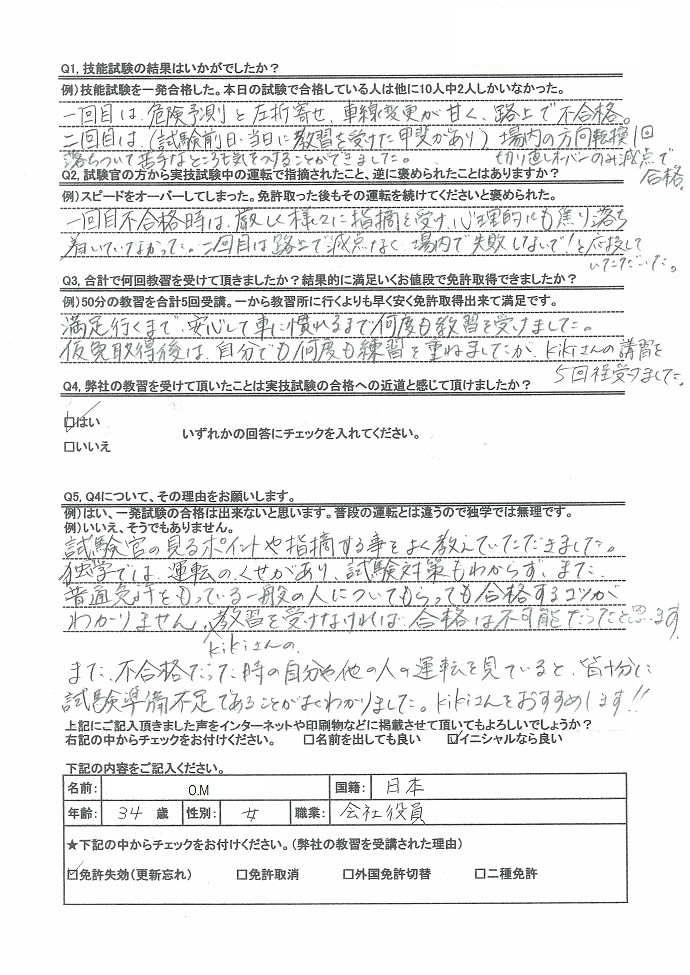 Q1, 技能試験の結果はいかがでしたか？
例）技能試験を一発合格した。本日の試験で合格している人は他に10人中2人しかいなかった。
一回目は、危険予測と左折寄せ、車線変更が甘く、路上で不合格。
二回目は、(試験前日・当日に教習を受けた甲斐があり) 場内の方向転換1回
落ちついて苦手なところも気をつけることができました。 切り返しオーバーのみ減点で
合格。
Q2, 試験官の方から実技試験中の運転で指摘されたこと、逆に褒められたことはありますか？
例）スピードをオーバーしてしまった。免許取った後もその運転を続けてくださいと褒められた。
一回目不合格時は、厳しく様々に指摘を受け、心理的にも焦り落ち
着いていなかった。二回目は路上で減点なく、場内で"失敗しないで!"と応援して
いただいた。
Q3, 合計で何回教習を受けて頂きましたか？結果的に満足いくお値段で免許取得できましたか？
例）50分の教習を合計5回受講。一から教習所に行くよりも早く安く免許取得出来て満足です。
満足行くまで、安心して車に慣れるまで何度も教習を受けました。
仮免取得後は、自分でも何度も練習を重ねましたが、kikiさんの講習を
5回程受けました。
Q4, 弊社の教習を受けて頂いたことは実技試験の合格への近道と感じて頂けましたか？
☑はい
いずれかの回答にチェックを入れてください。
□いいえ
Q5, Q4について、その理由をお願いします。
例）はい、一発試験の合格は出来ないと思います。普段の運転とは違うので独学では無理です。
例）いいえ、そうでもありません。
試験官の見るポイントや指摘する事をよく教えていただきました。
独学では、運転のくせがあり、試験対策もわからず、また、
普通免許をもっている一般の人についてもらっても合格するコツが
わかりません。教習を受けなければ、合格は不可能だったと思います
kikiさんの
また、不合格だった時の自分や他の人の運転を見ていると、皆十分に
試験準備不足であることがよくわかりました。kikiさんをおすすめします!!
上記にご記入頂きました声をインターネットや印刷物などに掲載させて頂いてもよろしいでしょうか？
右記の中からチェックをお付けください。 □名前を出しても良い ☑イニシャルなら良い
下記の内容をご記入ください。
名前: O.M 国籍: 日本
年齢: 34 歳 性別: 女 職業: 会社役員
★下記の中からチェックをお付けください。（弊社の教習を受講された理由）
☑免許失効（更新忘れ） □免許取消 □外国免許切替 □二種免許